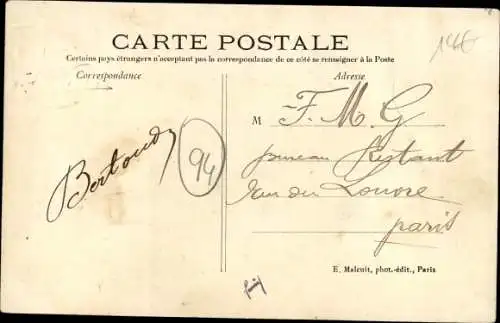 CARTE POSTALE
14€
Certains pays étrangers n'acceptant pas la correspondance de ce côté se renseigner à la Poste
Correspondance
Adresse
M F. M. G.
bureau Restant
rue du Louvre
paris
Bertoud
94
E. Malcuit, phot.-édit., Paris